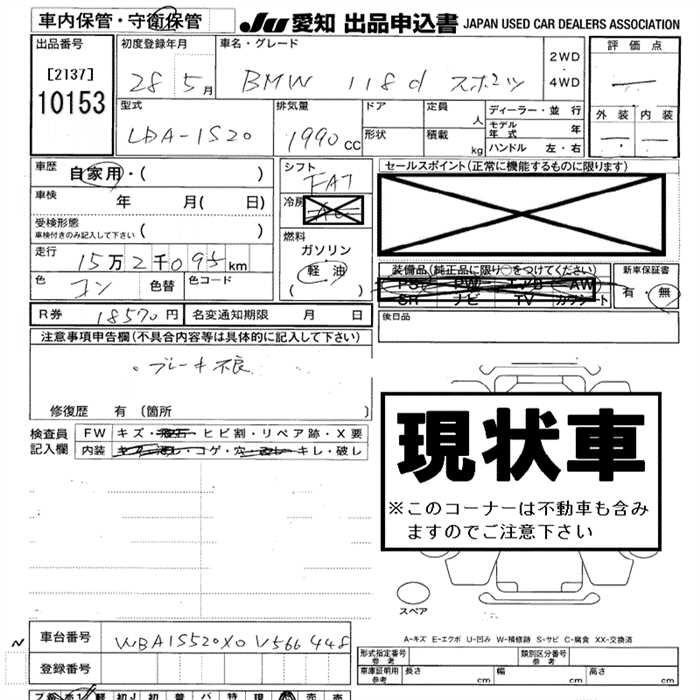 車内保管・守衛保管
JU 愛知 出品申込書 JAPAN USED CAR DEALERS ASSOCIATION
出品番号
[2137]
10153
初度登録年月
28 5月
車名・グレード
BMW 118d スポーツ
2WD
・
4WD
評価点
外装 内装
型式
LDA-1S20
排気量
1990 cc
ドア
形状
定員
人
積載
kg
ディーラー・並行
モデル年式 年
ハンドル 左・右
車歴
自家用・( )
車検 年 月( 日)
受検形態
車検付きのみ記入して下さい ( )
走行
15万2千095km
色 コン 色替 色コード
シフト
FAT
冷房
AC
燃料
ガソリン
・
軽油
( )
セールスポイント(正常に機能するものに限ります)
装備品(純正品に限り○をつけてください)
PS PW エアB AW
SR ナビ TV カワシート
新車保証書
有・無
後日品
R券 18570円 名変通知期限 月 日
注意事項申告欄(不具合内容等は具体的に記入して下さい)
ブレーキ不良
修復歴 有 〔箇所 〕
検査員
記入欄
FW キズ・飛石・ヒビ割・リペア跡・X要
内装 コゲ・穴・キレ・破レ
現状車
※このコーナーは不動車も含み
ますのでご注意下さい
スペア
A-キズ E-エクボ U-凹み W-補修跡 S-サビ C-腐食 XX-交換済
車台番号 WBA1S520X0V566448
登録番号
形式指定番号
参考
類別区分番号
参考
車庫証明用
参考
長さ cm 幅 cm 高さ cm